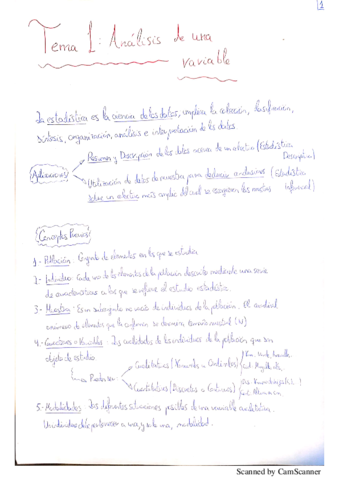 1
Tema 1: Análisis de una
variable
La estadística es la ciencia de los datos, implica la colección, clasificación,
síntesis, organización, análisis e interpretación de los datos
Aplicaciones
Resumen y Descripción de los datos acerca de un colectivo (Estadística
Descriptiva)
Utilización de datos de muestra para obtener conclusiones (Estadística
sobre un colectivo más amplio del cual se escogieron las muestras Inferencial)
Conceptos Previos
1- Población: Conjunto de elementos en los que se estudia
2- Individuo: Cada uno de los elementos de la población descrito mediante una serie
de características a las que se refiere el estudio estadístico.
3- Muestra: Es un subconjunto no vacío de individuos de la población. El cardinal
número de elementos que la conforma se denomina tamaño muestral (n)
4- Caracteres o Variables: Las cualidades de los individuos de la población que son
objeto de estudio
Pueden ser
Cualitativas (Nominales o Ordinales)
Cuantitativas (Discretas o Continuas)
5- Modalidades: Las diferentes situaciones posibles de una variable cualitativa.
Un individuo debe pertenecer a una, y solo una, modalidad.
Scanned by CamScanner